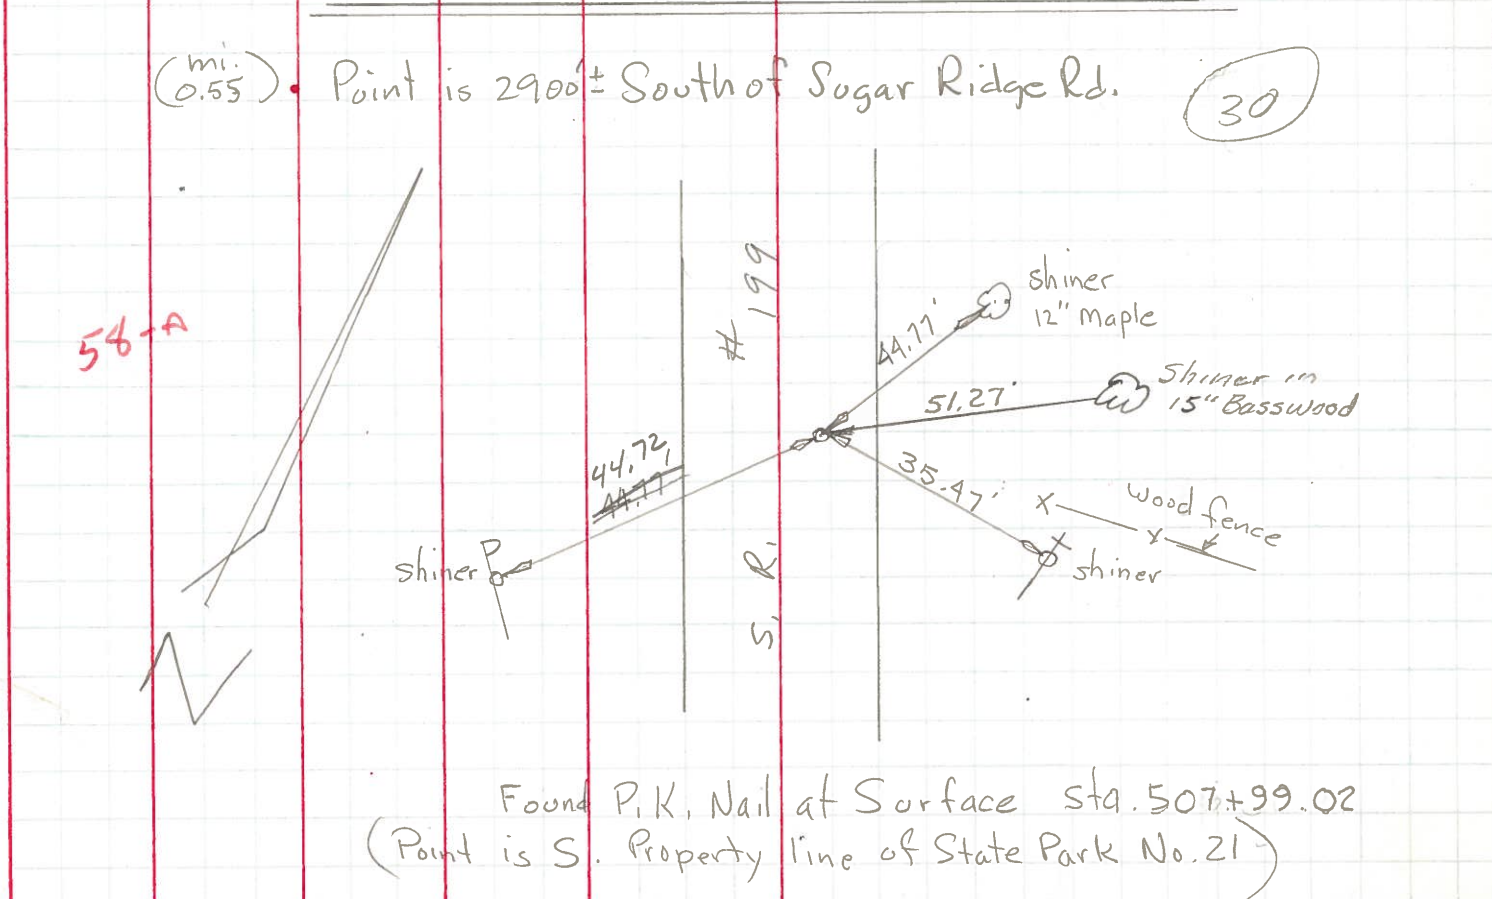 (mi. 0.55) • Point is 2900'± South of Sugar Ridge Rd.
30
58-A
S. R. # 199
shiner
12" Maple
44.77'
Shiner in
15" Basswood
51.27'
44.72'
44.77'
35.47'
wood fence
shiner P
shiner
N
Found P.K. Nail at Surface Sta. 507+99.02
(Point is S. Property line of State Park No. 21)